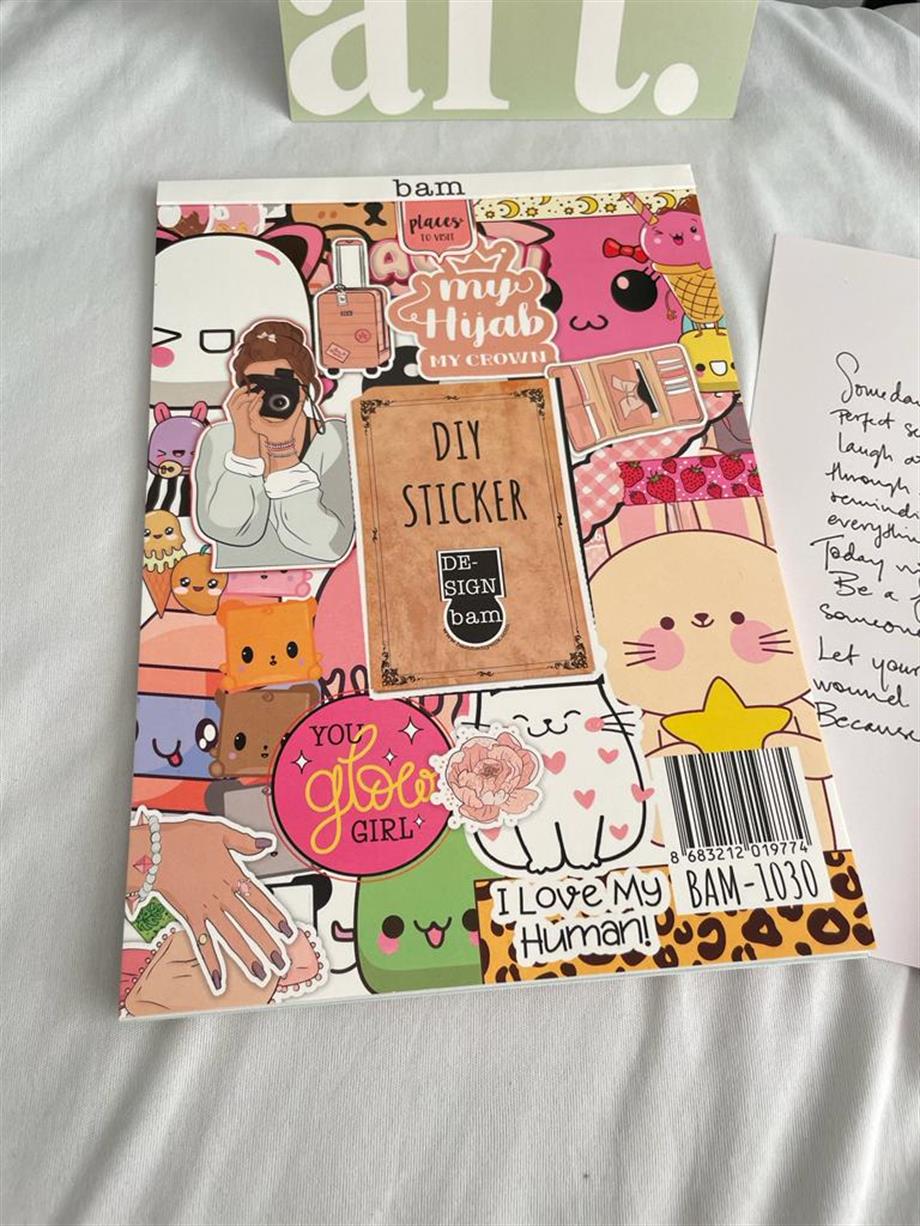 art.
bam
places
TO VISIT
my
Hijab
MY CROWN
DIY
STICKER
DE-
SIGN
bam
YOU
glow
GIRL
I Love My
Human!
8 683212 019774
BAM-1030
Perfect
laugh
through
everything
Today
Be a
someone
Let your
wound
Because